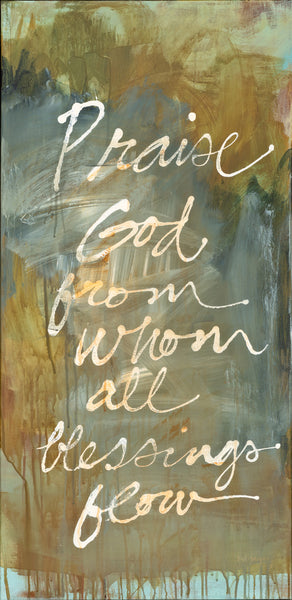 Praise
God
from
whom
all
blessings
flow